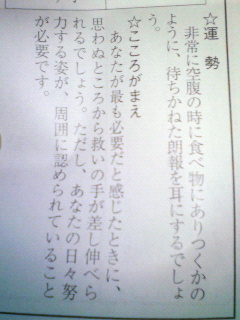 ☆運　勢
　非常に空腹の時に食べ物にありつくかの
ように、待ちかねた朗報を耳にするでしょ
う。
☆こころがまえ
　あなたが最も必要だと感じたときに、
思わぬところから救いの手が差し伸べら
れるでしょう。ただし、あなたの日々努
力する姿が、周囲に認められていること
が必要です。